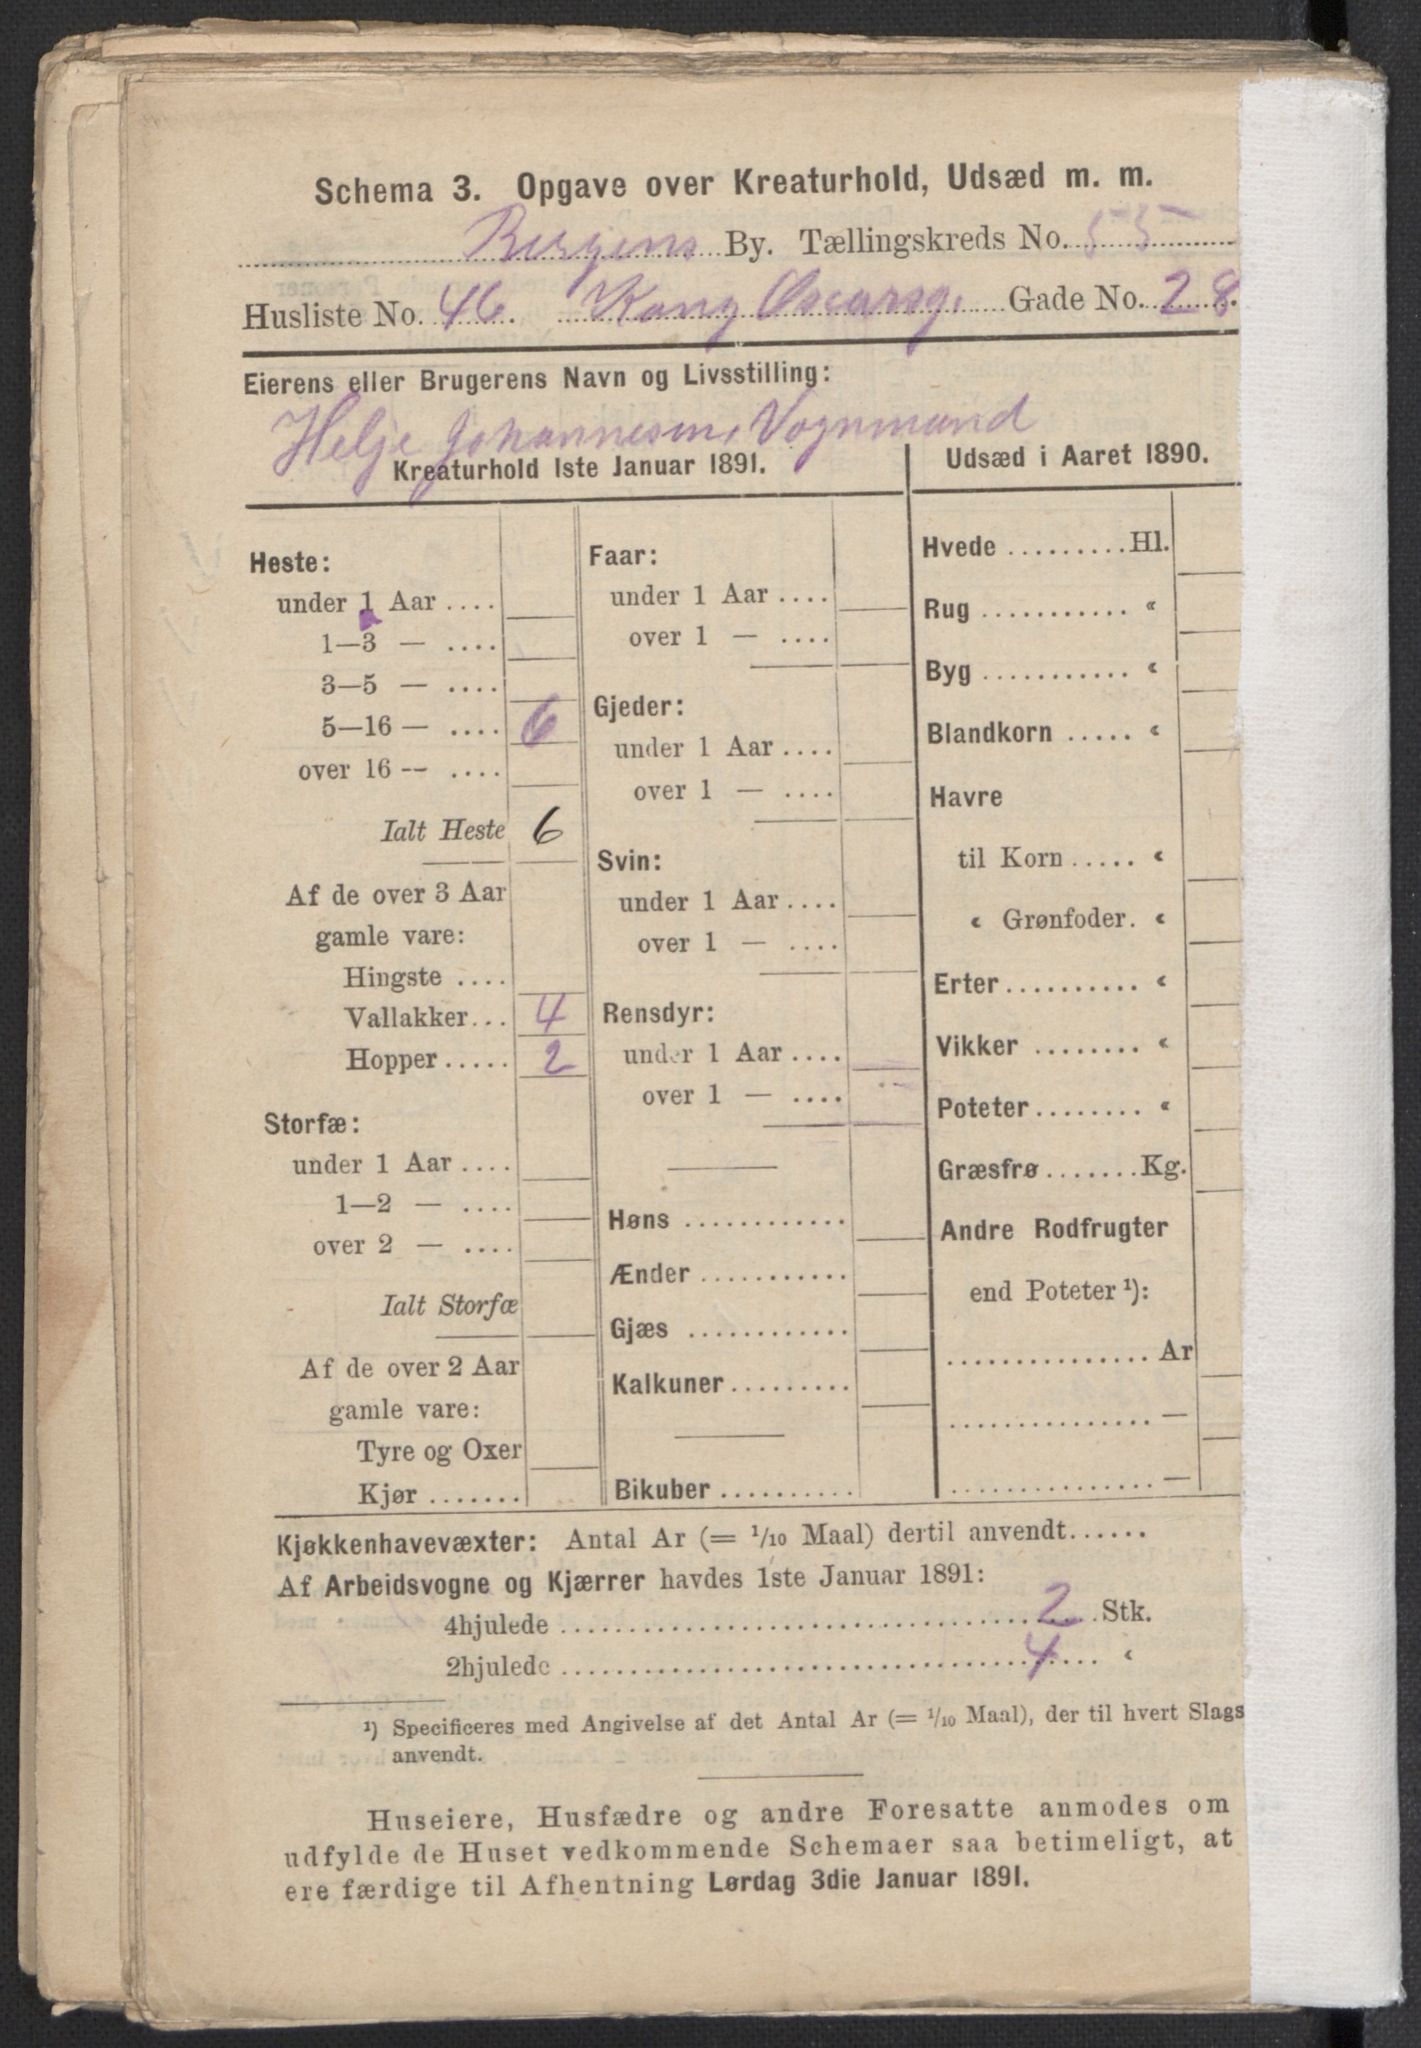 Schema 3. Opgave over Kreaturhold, Udsæd m. m.
Bergens By. Tællingskreds No. 55
Husliste No. 46. Kong Oscarsg. Gade No. 28.
Eierens eller Brugerens Navn og Livsstilling:
Helje Johannesen, Vognmand
Kreaturhold 1ste Januar 1891.
Heste:
under 1 Aar ....
1—3 — ....
3—5 — ....
5—16 — .... 6
over 16 — ....
Ialt Heste 6
Af de over 3 Aar
gamle vare:
Hingste ....
Vallakker... 4
Hopper..... 2
Storfæ:
under 1 Aar ....
1—2 — ....
over 2 — ....
Ialt Storfæ
Af de over 2 Aar
gamle vare:
Tyre og Oxer
Kjør .......
Faar:
under 1 Aar ....
over 1 — ....
Gjeder:
under 1 Aar ....
over 1 — ....
Svin:
under 1 Aar ....
over 1 — ....
Rensdyr:
under 1 Aar ....
over 1 — ....
Høns ............
Ænder ...........
Gjæs ............
Kalkuner.........
Bikuber ..........
Udsæd i Aaret 1890.
Hvede .........Hl.
Rug ........... «
Byg ........... «
Blandkorn ..... «
Havre
til Korn ..... «
« Grønfoder. «
Erter.......... «
Vikker ........ «
Poteter........ «
Græsfrø .......Kg.
Andre Rodfrugter
end Poteter ¹):
............... Ar
............... —
............... —
Kjøkkenhavevæxter: Antal Ar (= 1/10 Maal) dertil anvendt......
Af Arbeidsvogne og Kjærrer havdes 1ste Januar 1891:
4hjulede ........ 2 Stk.
2hjulede ........ 4 «
¹) Specificeres med Angivelse af det Antal Ar (= 1/10 Maal), der til hvert Slags
anvendt.
Huseiere, Husfædre og andre Foresatte anmodes om
udfylde de Huset vedkommende Schemaer saa betimeligt, at
ere færdige til Afhentning Lørdag 3die Januar 1891.